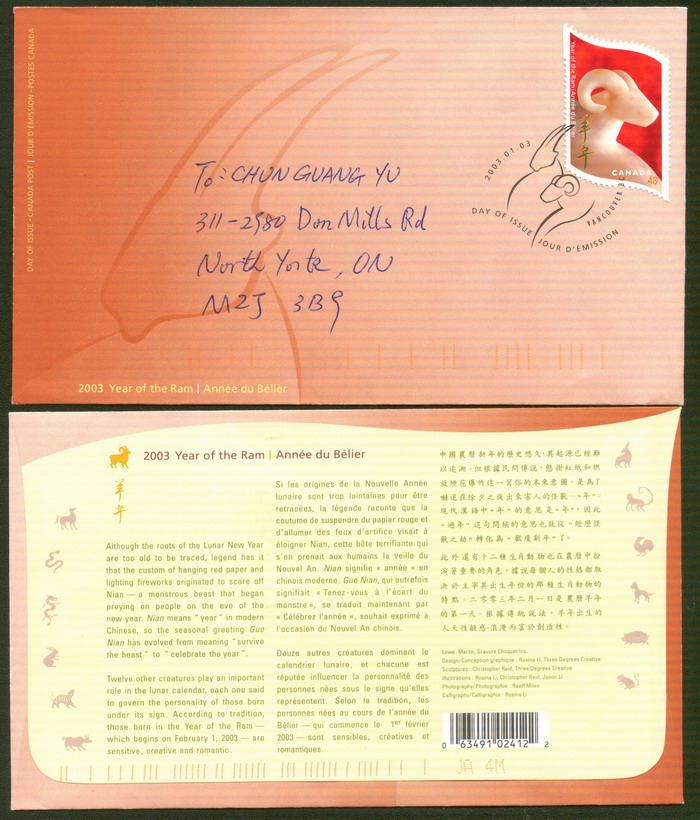 DAY OF ISSUE · CANADA POST | JOUR D'ÉMISSION · POSTES CANADA
Year of the Ram/Année du Bélier
羊年
CANADA
48
2003.01.03
DAY OF ISSUE
JOUR D'ÉMISSION
To: CHUN GUANG YU
311-2980 Don Mills Rd
North York, ON
M2J 3B9
2003 Year of the Ram | Année du Bélier
2003 Year of the Ram | Année du Bélier
羊年
Although the roots of the Lunar New Year
are too old to be traced, legend has it
that the custom of hanging red paper and
lighting fireworks originated to scare off
Nian — a monstrous beast that began
preying on people on the eve of the
new year. Nian means "year" in modern
Chinese, so the seasonal greeting Guo
Nian has evolved from meaning "survive
the beast" to "celebrate the year".
Twelve other creatures play an important
role in the lunar calendar, each one said
to govern the personality of those born
under its sign. According to tradition,
those born in the Year of the Ram —
which begins on February 1, 2003 — are
sensitive, creative and romantic.
Si les origines de la Nouvelle Année
lunaire sont trop lointaines pour être
retracées, la légende raconte que la
coutume de suspendre du papier rouge et
d'allumer des feux d'artifice visait à
éloigner Nian, cette bête terrifiante qui
s'en prenait aux humains la veille du
Nouvel An. Nian signifie « année » en
chinois moderne. Guo Nian, qui autrefois
signifiait « Tenez-vous à l'écart du
monstre », se traduit maintenant par
« Célébrez l'année », souhait exprimé à
l'occasion du Nouvel An chinois.
Douze autres créatures dominent le
calendrier lunaire, et chacune est
réputée influencer la personnalité des
personnes nées sous le signe qu'elles
représentent. Selon la tradition, les
personnes nées au cours de l'année du
Bélier — qui commence le 1er février
2003 — sont sensibles, créatives et
romantiques.
中國農曆新年的歷史悠久，其起源已經難
以追溯。但根據民間傳說，懸掛紅紙和燃
放煙花爆竹這一習俗的本來意圖，是爲了
嚇退在除夕之夜出來害人的怪獸—"年"。
現代漢語中"年"的意思是"年"，因此
"過年"這句問候的意思也就從"經歷怪
獸之劫"轉化爲"歡度新年"了。
此外還有十二種生肖動物也在農曆中扮
演著重要的角色。據說每個人的性格都取
決於主宰其出生年份的那種生肖動物的
特點。二零零三年二月一日是農曆羊年
的第一天。根據傳統說法，羊年出生的
人天性敏感、浪漫而富於創造性。
Lowe-Martin, Gravure Choquet Inc.
Design/Conception graphique : Rosina Li, Three Degrees Creative
Sculptures : Christopher Reid, Three Degrees Creative
Illustrations : Rosina Li, Christopher Reid, Jason Li
Photography/Photographie : Raeff Miles
Calligraphy/Calligraphie : Rosina Li
0 63491 02412 2
JA 4M